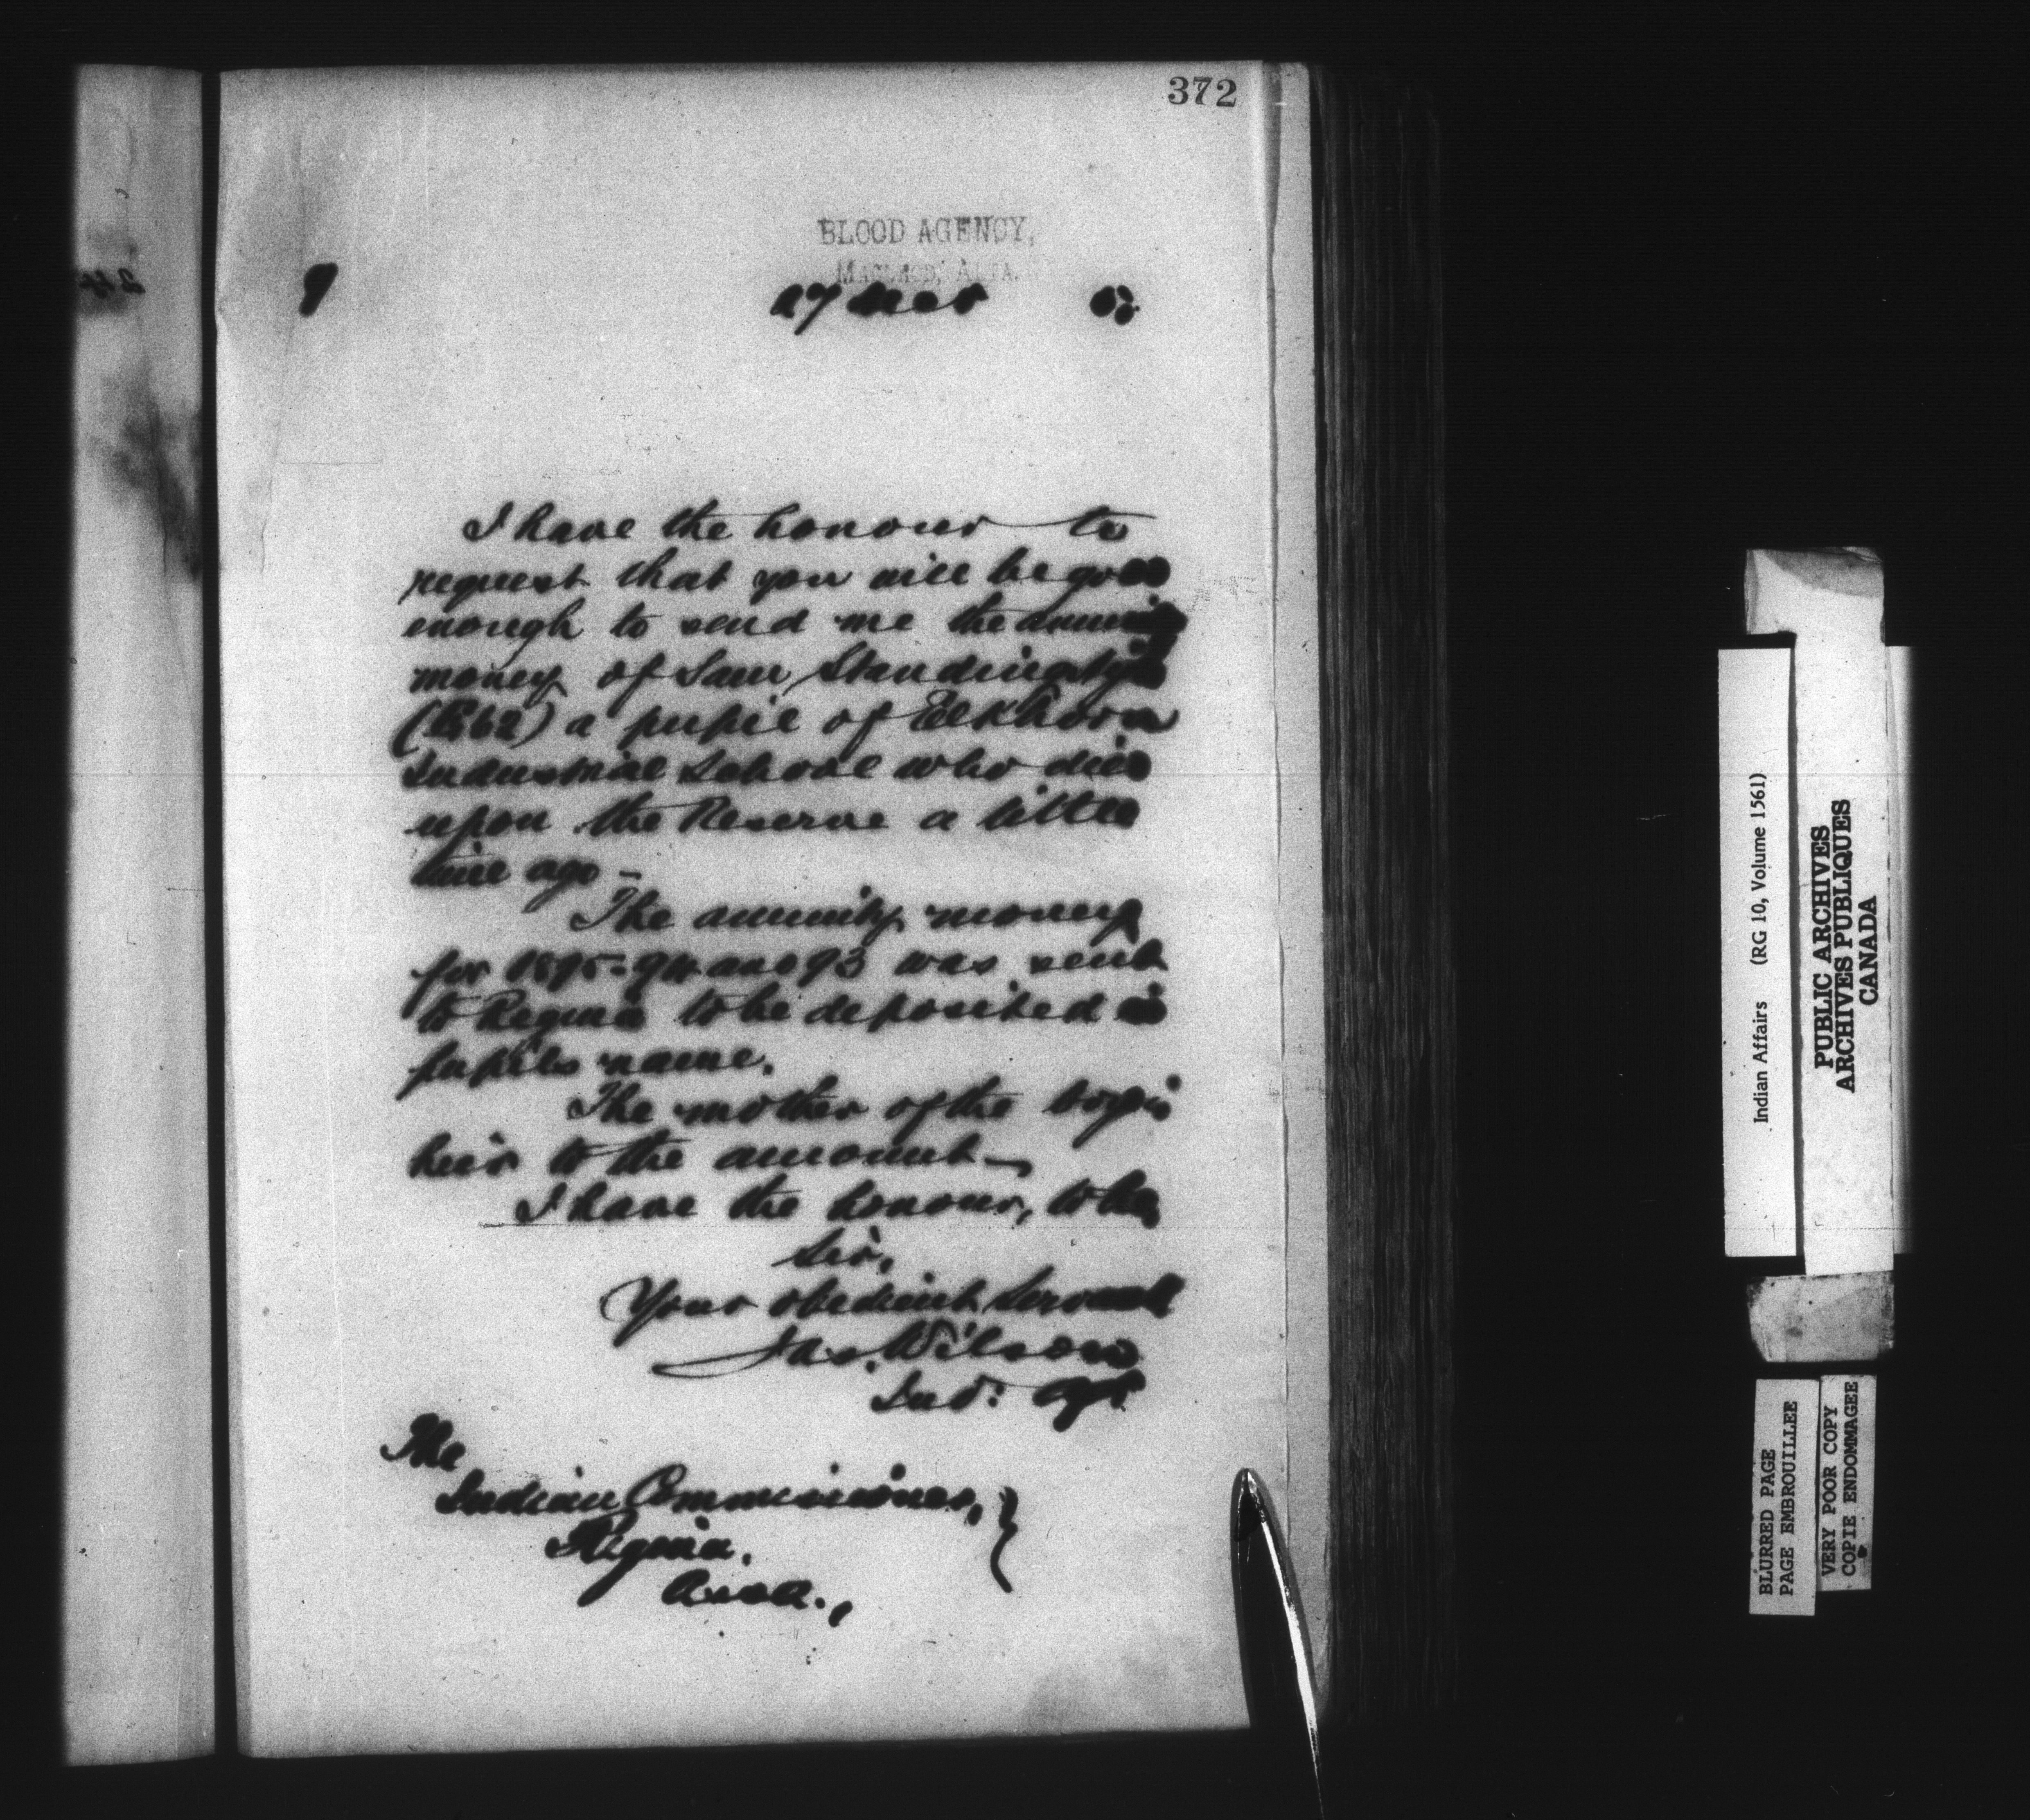 372
BLOOD AGENCY,
MACLEOD, ALTA.
27
I have the honour to
request that you will be good
enough to send me the annuity
money of Sam Standing
a pupil of Elkhorn
Industrial School who died
upon the Reserve a little
time ago -
The annuity money
for 1895-94 and 93 was sent
to Regina to be deposited in
pupils name.
The mother of the boy is
heir to the amount -
I have the honour, to be,
Sir,
Your obedient Servant
Jas. Wilson
Ind: Agt
The
Indian Commissioner,
Regina,
Assa.,
Indian Affairs (RG 10, Volume 1561)
PUBLIC ARCHIVES
ARCHIVES PUBLIQUES
CANADA
BLURRED PAGE
PAGE EMBROUILLEE
VERY POOR COPY
COPIE ENDOMMAGEE